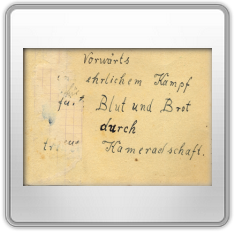 Vorwärts
ehrlichem Kampf
für Blut und Brot
durch
Kameradschaft.